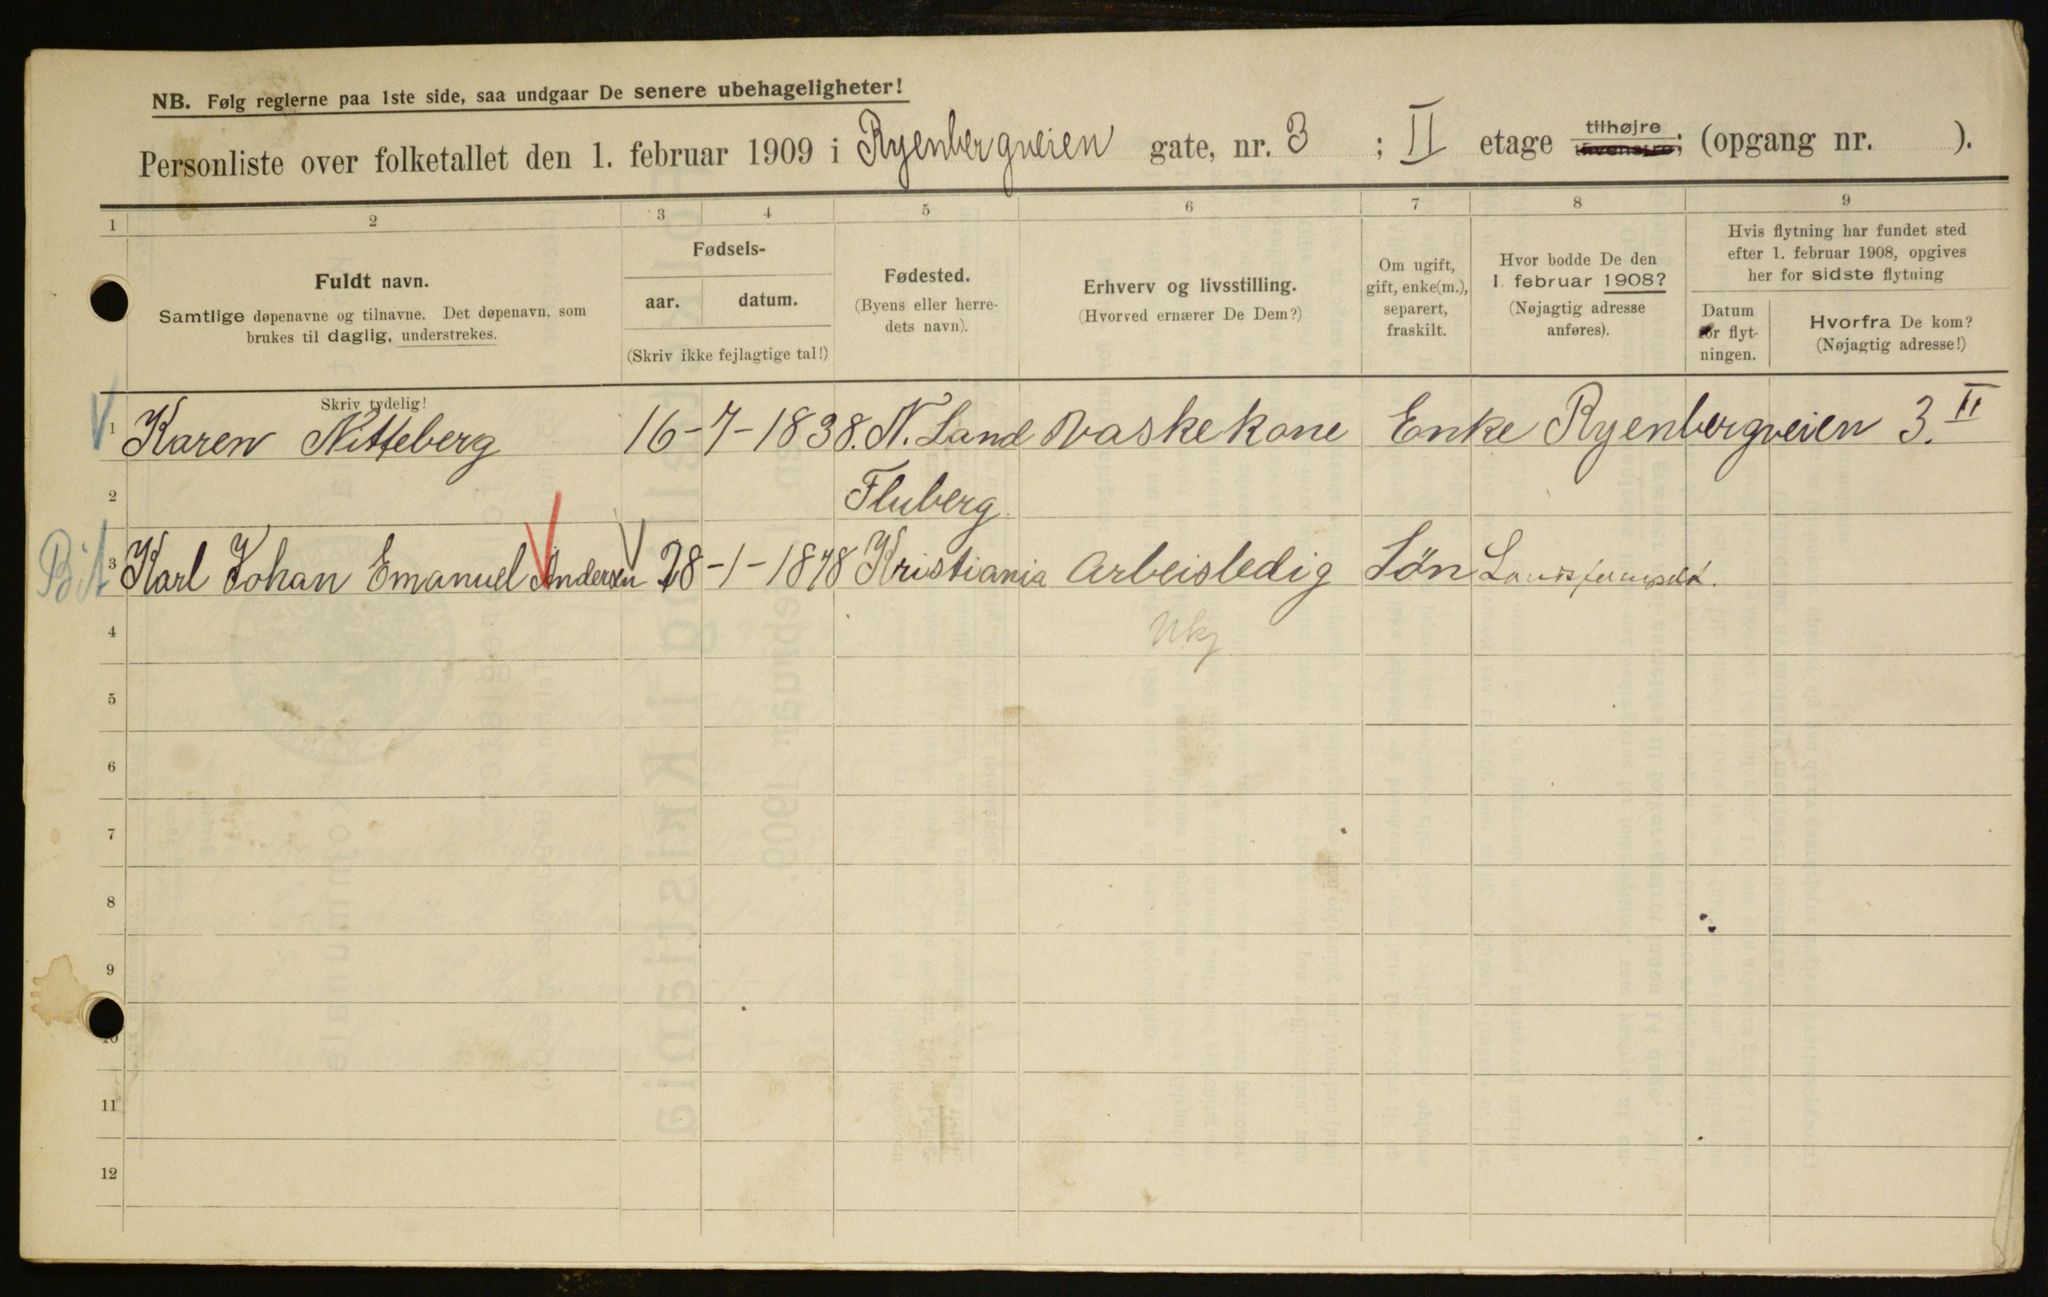 NB. Følg reglerne paa 1ste side, saa undgaar De senere ubehageligheter!
Personliste over folketallet den 1. februar 1909 i Ryenbergveien gate, nr. 3 ; II etage tilhøjre tilvenstre; (opgang nr. ).
1 2 3 4 5 6 7 8 9
Fuldt navn.
Samtlige døpenavne og tilnavne. Det døpenavn, som
brukes til daglig, understrekes.
Skriv tydelig!
Fødsels-
aar. datum.
(Skriv ikke fejlagtige tal!)
Fødested.
(Byens eller herre-
dets navn).
Erhverv og livsstilling.
(Hvorved ernærer De Dem?)
Om ugift,
gift, enke(m.),
separert,
fraskilt.
Hvor bodde De den
1. februar 1908?
(Nøjagtig adresse
anføres).
Hvis flytning har fundet sted
efter 1. februar 1908, opgives
her for sidste flytning
Datum
for flyt-
ningen.
Hvorfra De kom?
(Nøjagtig adresse!)
1 Karen Nitteberg 16-7-1838. N. Land Vaskekone Enke Ryenbergveien 3. II
2 Fluberg.
3 Karl Johan Emanuel Andersen 28-1-1878 Kristiania Arbeisledig Søn
4
5
6
7
8
9
10
11
12